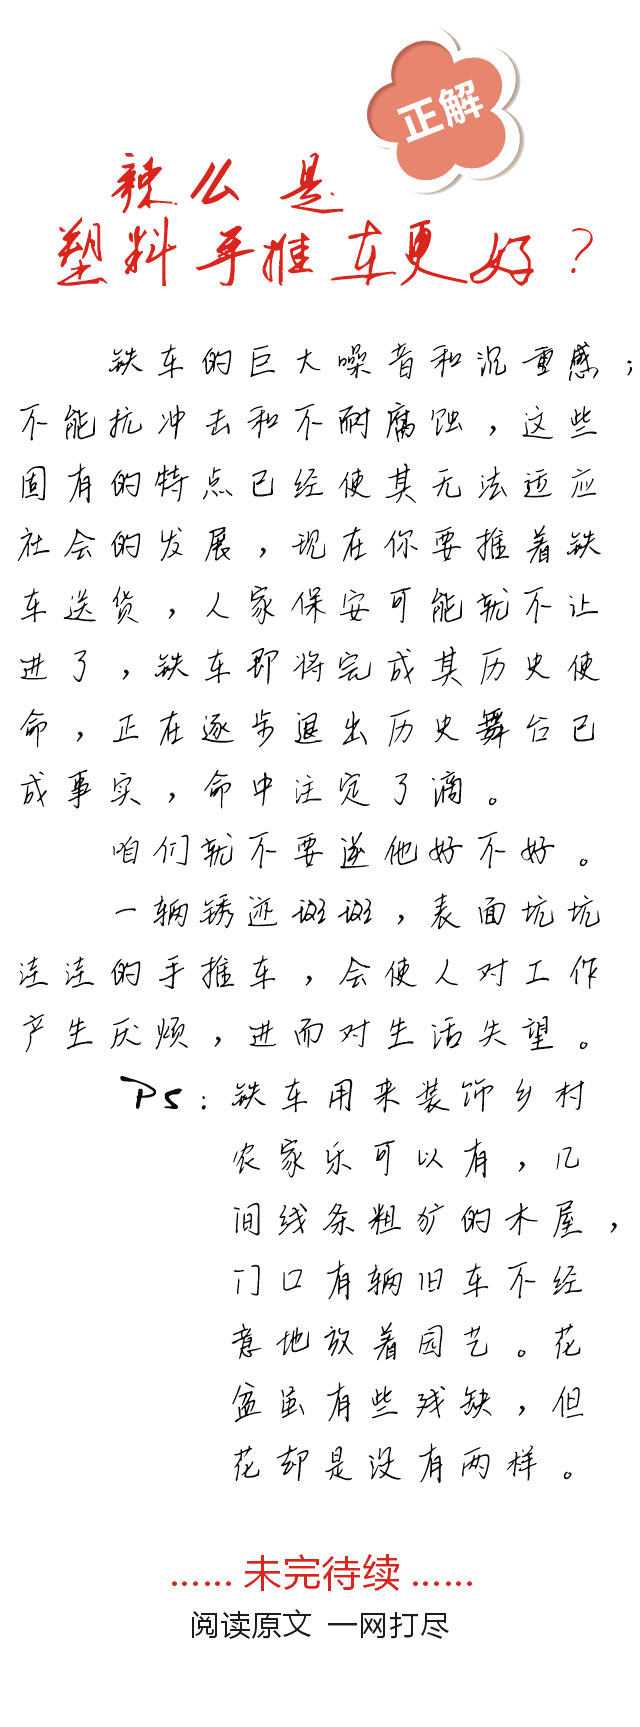 正解
辣么是
塑料手推车更好？
铁车的巨大噪音和沉重感；
不能抗冲击和不耐腐蚀，这些
固有的特点已经使其无法适应
社会的发展，现在你要推着铁
车送货，人家保安可能就不让
进了，铁车即将完成其历史使
命，正在逐步退出历史舞台已
成事实，命中注定了滴。
咱们就不要遂他好不好。
一辆锈迹斑斑，表面坑坑
洼洼的手推车，会使人对工作
产生厌烦，进而对生活失望。
PS：铁车用来装饰乡村
农家乐可以有，几
间线条粗犷的木屋，
门口有辆旧车不经
意地放着园艺。花
盆虽有些残缺，但
花却是没有两样。
……未完待续……
阅读原文 一网打尽